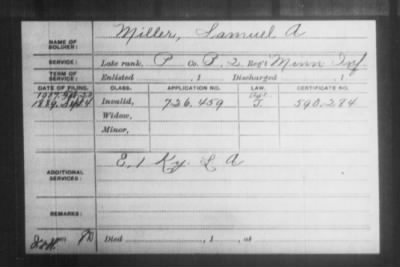 NAME OF SOLDIER: Miller, Samuel A
SERVICE: Late rank, P Co. B, 2 Reg't Minn Inf
TERM OF SERVICE: Enlisted , 1 Discharged , 1
DATE OF FILING. CLASS. APPLICATION NO. LAW. CERTIFICATE NO.
1889 Invalid, 726.459 J. 590.284
Widow,
Minor,
ADDITIONAL SERVICES: E. 1 Ky. L A
REMARKS:
Died , 1 , at